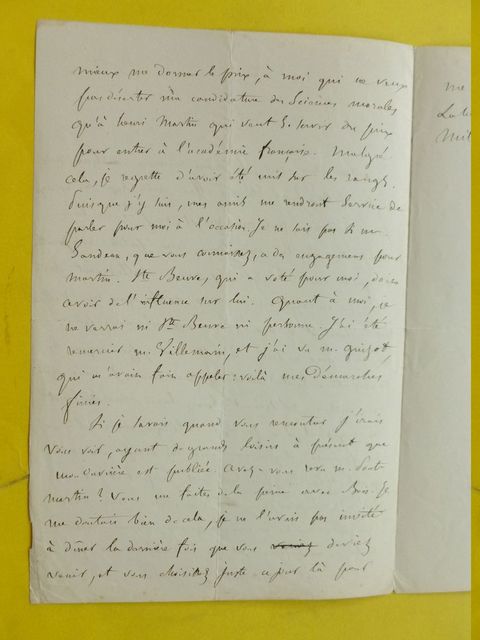 mieux me donner le prix, à moi qui ne veux
pas déserter ma candidature des Sciences morales
qu'à henri Martin qui veut se servir du prix
pour entrer à l'académie française. Malgré
cela, je regrette d'avoir été mis sur les rangs.
Puisque j'y suis, mes amis me rendront service de
parler pour moi à l'occasion. Je ne sais pas si m.
Sandeau, que vous connaissez, a des engagemens pour
martin. Ste Beuve, qui a voté pour moi, doit
avoir de l'influence sur lui. Quant à moi, je
ne verrai ni Ste Beuve ni personne. J'ai été
remercier m. Villemain, et j'ai vu m. guizot,
qui m'avait fait appeler : voilà mes Démarches
finies.
Si je savais quand vous rencontrer j'irais
vous voir, ayant de grands loisirs à présent que
mon ouvrière est publiée. avez-vous revu m. Saint
martin? Vous me faites de la peine avec Bois. Je
me doutais bien de cela, je ne l'avais pas invité
à dîner la dernière fois que vous deviez
venir, et vous choisitez juste ce jour là pour
me